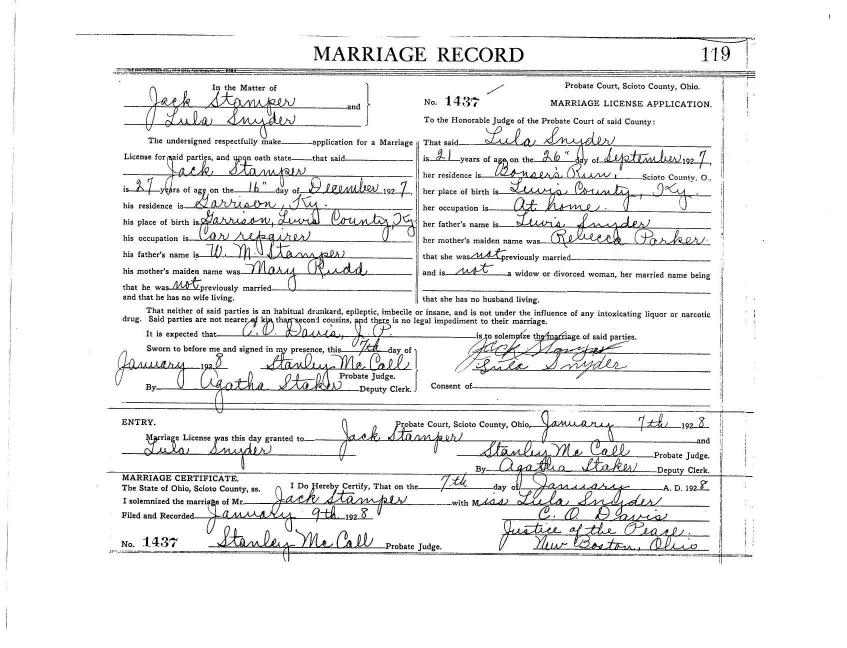 MARRIAGE RECORD 119
In the Matter of
Jack Stamper and
Lula Snyder
The undersigned respectfully make application for a Marriage
License for said parties, and upon oath state that said
Jack Stamper
is 27 years of age on the 16" day of December 1927,
his residence is Garrison, Ky.
his place of birth is Garrison, Lewis County, Ky
his occupation is Car repairer
his father's name is W. M. Stamper
his mother's maiden name was Mary Rudd
that he was not previously married
and that he has no wife living.
Probate Court, Scioto County, Ohio.
No. 1437 MARRIAGE LICENSE APPLICATION.
To the Honorable Judge of the Probate Court of said County:
That said Lula Snyder
is 21 years of age on the 26" day of September 1927,
her residence is Bonsers Run, Scioto County, O.,
her place of birth is Lewis County, Ky.
her occupation is At home.
her father's name is Lewis Snyder
her mother's maiden name was Rebecca Parker.
that she was not previously married
and is not a widow or divorced woman, her married name being
that she has no husband living.
That neither of said parties is an habitual drunkard, epileptic, imbecile or insane, and is not under the influence of any intoxicating liquor or narcotic
drug. Said parties are not nearer of kin than second cousins, and there is no legal impediment to their marriage.
It is expected that C. O. Davis, J. P. is to solemnize the marriage of said parties.
Sworn to before me and signed in my presence, this 7th day of
January 1928 Stanley McCall
Probate Judge.
By Agatha Staker Deputy Clerk.
Jack Stamper
Lula Snyder
Consent of
ENTRY. Probate Court, Scioto County, Ohio, January 7th 1928
Marriage License was this day granted to Jack Stamper and
Lula Snyder Stanley McCall Probate Judge.
By Agatha Staker Deputy Clerk.
MARRIAGE CERTIFICATE.
The State of Ohio, Scioto County, ss. I Do Hereby Certify, That on the 7th day of January A. D. 1928
I solemnized the marriage of Mr. Jack Stamper with Miss Lula Snyder
Filed and Recorded January 9th 1928 C. O. Davis
Justice of the Peace.
No. 1437 Stanley McCall Probate Judge. New Boston, Ohio